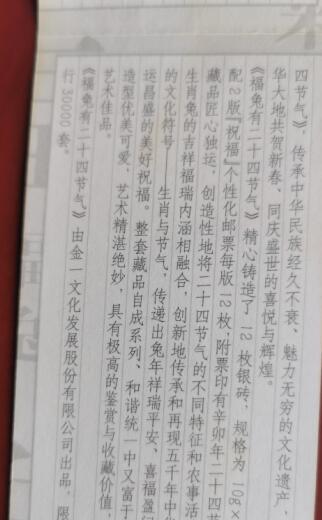 四节气》，传承中华民族经久不衰、魅力无穷的文化遗产，
华大地共贺新春、同庆盛世的喜悦与辉煌。
《福兔有二十四节气》精心铸造了 12 枚银砖，规格为 10g×
配 2 版『祝福』个性化邮票每版 12 枚，附票印有辛卯年二十四节
藏品匠心独运，创造性地将二十四节气的不同特征和农事活
生肖兔的吉祥福瑞内涵相融合，创新地传承和再现五千年中华
的文化符号——生肖与节气，传递出兔年祥瑞平安、喜福盈门
运昌盛的美好祝福。整套藏品自成系列、和谐统一中又富于
造型优美可爱，艺术精湛绝妙，具有极高的鉴赏与收藏价值，
艺术佳品。
《福兔有二十四节气》由金一文化发展股份有限公司出品，限
行 30000 套。